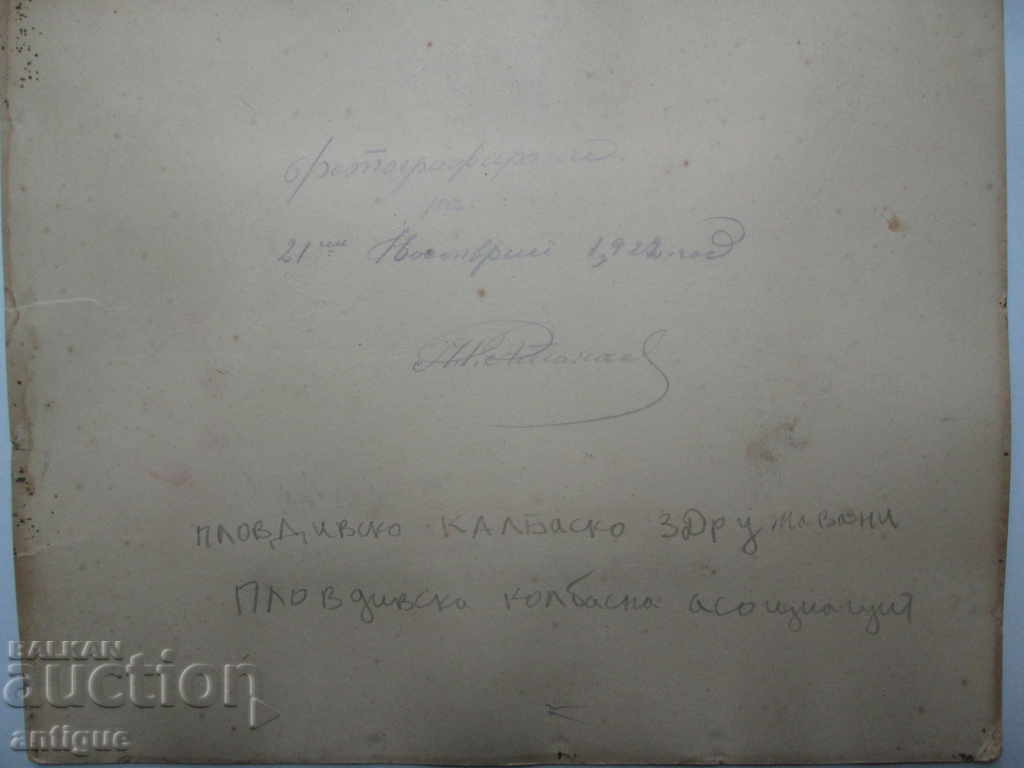 фотографирани
на
21ии Ноемврий 1922 год
ПЛОВДИВСКО КАЛБАСКО ЗДРУЖАВАНИ
ПЛОВДИВСКА КОЛБАСНА асоциация
BALKAN
auction
antique